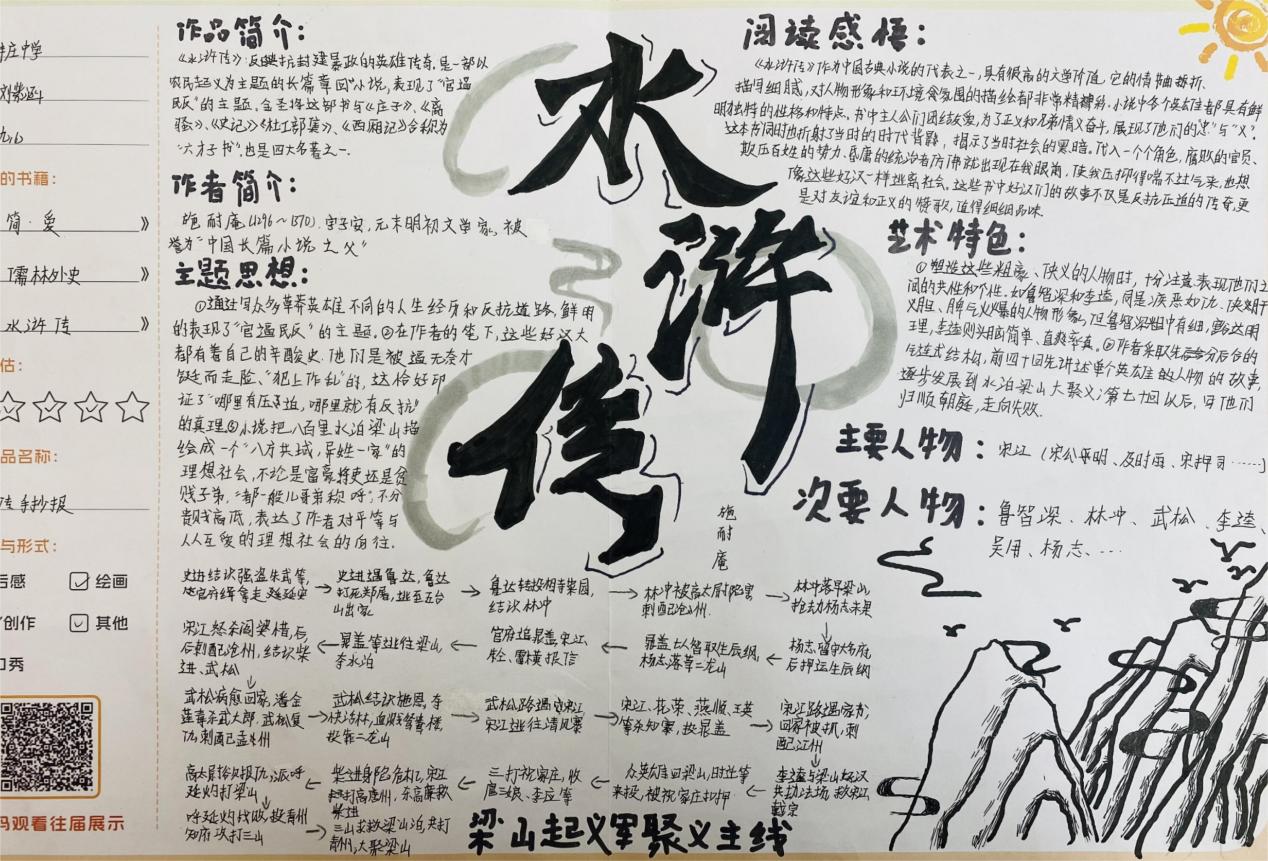 作品简介:
《水浒传》:反映抗封建暴政的英雄传奇.是一部以
农民起义为主题的长篇章回小说,表现了“官逼
民反”的主题.金圣择这部书与《庄子》、《离
骚》、《史记》《杜工部集》、《西厢记》合称为
“六才子书”.也是四大名著之一.
作者简介:
施耐庵(1296~1370).字子安,元末明初文学家,被
誉为“中国长篇小说之父”
主题思想:
①通过写众多草莽英雄不同的人生经历和反抗道路,鲜明
的表现了“官逼民反”的主题.②在作者的笔下,这些好汉大
都有着自己的辛酸史.他们是被逼无奈才
铤而走险、“犯上作乱”的,这恰好印
证了“哪里有压迫,哪里就有反抗”
的真理③小说把八百里水泊梁山描
绘成一个“八方共域,异姓一家”的
理想社会,不论是富豪将吏还是贫
贱子弟,“都一般儿哥弟称呼”,不分
贵贱高低,表达了作者对平等与
人人互爱的理想社会的向往.
水浒传
施耐庵
阅读感悟:
《水浒传》作为中国古典小说的代表之一,具有很高的文学价值.它的情节曲折、
描写细腻,对人物形象和环境氛围的描绘都非常精彩.小说中各个英雄都具有鲜
明独特的性格和特点.书中主人公们团结友爱,为了正义和兄弟情义奋斗,展现了他们的“忠”与“义”.
这本书同时也折射了当时的时代背景,揭示了当时社会的黑暗.代入一个个角色,腐败的官员、
欺压百姓的势力.昏庸的统治者仿佛就出现在我眼前,使我压抑得喘不过气来,也想
像这些好汉一样逃离社会.这些书中好汉们的故事不仅是反抗压迫的传奇,更
是对友谊和正义的赞歌,值得细细品味.
艺术特色:
①塑造这些粗豪、侠义的人物时,十分注意表现他们之
间的共性和个性.如鲁智深和李逵,同是疾恶如仇、侠肝
义胆、脾气火爆的人物形象,但鲁智深粗中有细,豁达明
理,李逵则头脑简单、直爽率真.②作者采取先分后合的
链式结构,前四十回先讲述单个英雄人物的故事,
逐步发展到水泊梁山大聚义;第七十回以后,写他们
归顺朝庭,走向失败.
主要人物:宋江(宋公明、及时雨、宋押司……)
次要人物:鲁智深、林冲、武松、李逵、
吴用、杨志、…
史进结识强盗朱武等,
史进遇鲁达,鲁达
打死郑屠,逃至五台
山出家
鲁达转投相寺菜园,
结识林冲
林冲被高太尉陷害
刺配沧州.
林冲落草梁山,
宋江怒杀阎婆惜,后,
后刺配沧州,结识柴
进、武松
晁盖等逃往梁山,
官府追晁盖,宋江、
雷横报信
晁盖七人智取生辰纲,
杨志落草二龙山
杨志留大名府,
后押运生辰纲
武松病愈回家,潘金
莲毒杀武大郎,武松复
仇,刺配孟州
武松结识施恩,夺
快活林,血溅鸳鸯楼,
投靠二龙山
武松路遇宋江
宋江逃往清风寨
宋江、花荣、燕顺、王英
等杀知寨,投晁盖
宋江路遇家书,
回家被抓,刺
配江州
高太尉欲报仇,派呼
延灼打梁山
柴进身陷危机,宋江
三打祝家庄,收
扈三娘、李应等
众英雄回梁山,时迁等
来投,被祝家庄扣押
李逵与梁山好汉
共劫法场,救宋江
戴宗
呼延灼战败,投青州
知府攻打三山
三山求救梁山泊,共打
青州,大聚梁山
梁山起义军聚义主线
的书籍:
简·爱》
儒林外史》
水浒传》
估:
品名称:
传手抄报
与形式:
后感 绘画
创作 其他
秀
码观看往届展示